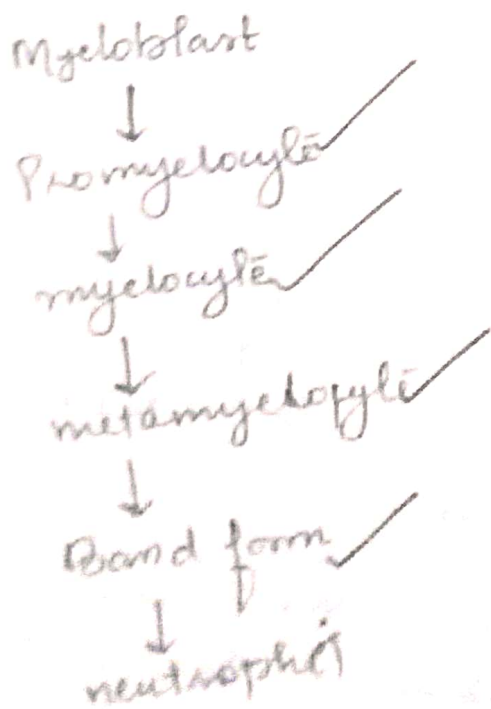 Myeloblast
↓
Promyelocyte
↓
myelocyte
↓
metamyelocyte
↓
Band form
↓
neutrophil